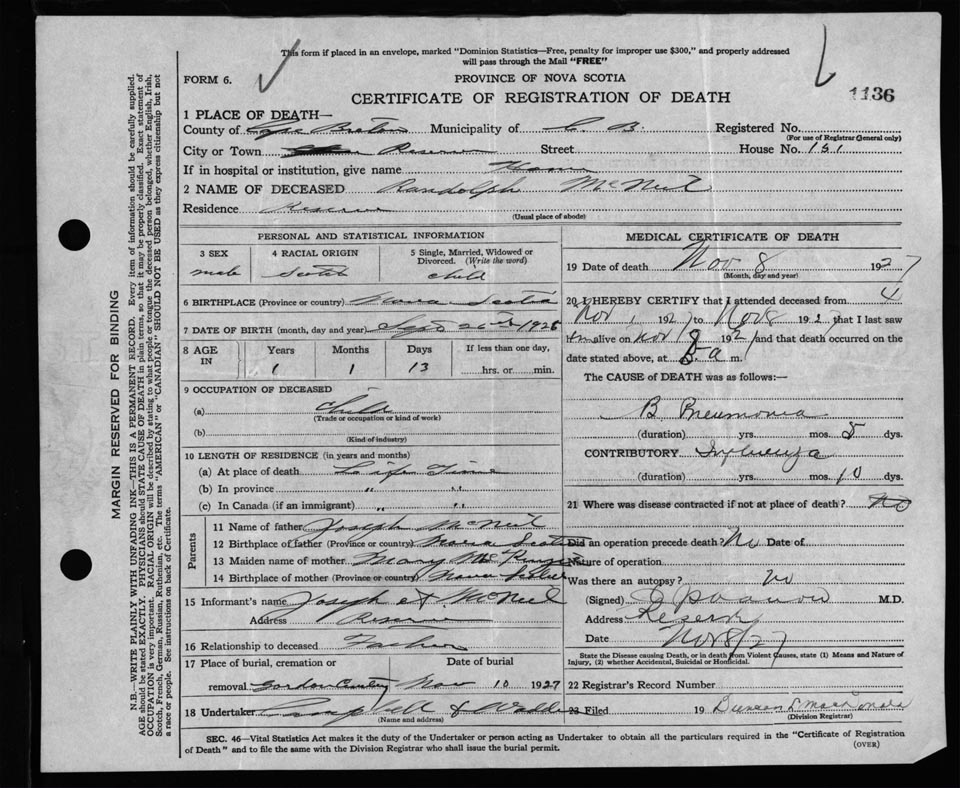 This form if placed in an envelope, marked "Dominion Statistics—Free, penalty for improper use $300," and properly addressed
will pass through the Mail "FREE"
FORM 6.
PROVINCE OF NOVA SCOTIA
CERTIFICATE OF REGISTRATION OF DEATH
1136
1 PLACE OF DEATH—
County of Cape Breton Municipality of C. B. Registered No.
(For use of Registrar General only)
City or Town Reserve Street House No. 151
If in hospital or institution, give name Home
2 NAME OF DECEASED Randolph McNeil
Residence Reserve
(Usual place of abode)
PERSONAL AND STATISTICAL INFORMATION
3 SEX male
4 RACIAL ORIGIN Scotch
5 Single, Married, Widowed or Divorced. (Write the word) child
6 BIRTHPLACE (Province or country) Nova Scotia
7 DATE OF BIRTH (month, day and year) Sept 26 1926
8 AGE IN Years Months Days If less than one day,
1 1 13 hrs. or min.
9 OCCUPATION OF DECEASED
(a) Child
(Trade or occupation or kind of work)
(b)
(Kind of industry)
10 LENGTH OF RESIDENCE (in years and months)
(a) At place of death Life Time
(b) In province " "
(c) In Canada (if an immigrant) " "
Parents
11 Name of father Joseph McNeil
12 Birthplace of father (Province or country) Nova Scotia
13 Maiden name of mother Mary
14 Birthplace of mother (Province or country) Nova Scotia
15 Informant's name Joseph McNeil
Address Reserve
16 Relationship to deceased Father
17 Place of burial, cremation or removal Date of burial
Nov 10 1927
18 Undertaker Campbell &
(Name and address)
MEDICAL CERTIFICATE OF DEATH
19 Date of death Nov 8 1927
(Month, day and year)
20 I HEREBY CERTIFY that I attended deceased from
Nov 1 1927 to Nov 8 192 that I last saw
him alive on Nov 8 1927 and that death occurred on the
date stated above, at a m.
The CAUSE of DEATH was as follows:—
B Pneumonia
(duration) yrs. mos. 5 dys.
CONTRIBUTORY Influenza
(duration) yrs. mos. 10 dys.
21 Where was disease contracted if not at place of death? no
Did an operation precede death? No Date of
Nature of operation
Was there an autopsy? no
(Signed) M.D.
Address Reserve
Date Nov 8/27
State the Disease causing Death, or in death from Violent Causes, state (1) Means and Nature of
Injury, (2) whether Accidental, Suicidal or Homicidal.
22 Registrar's Record Number
23 Filed 19 Duncan L MacDonald
(Division Registrar)
SEC. 46—Vital Statistics Act makes it the duty of the Undertaker or person acting as Undertaker to obtain all the particulars required in the "Certificate of Registration
of Death" and to file the same with the Division Registrar who shall issue the burial permit.
(OVER)
MARGIN RESERVED FOR BINDING
N.B.—WRITE PLAINLY WITH UNFADING INK—THIS IS A PERMANENT RECORD. Every item of information should be carefully supplied.
AGE should be stated EXACTLY. PHYSICIANS should STATE CAUSE OF DEATH in plain terms, so that it may be properly classified. Exact statement of
OCCUPATION is very important. RACIAL ORIGIN will be described by stating to what people or tongue the deceased person belonged, whether English, Irish,
Scotch, French, German, Russian, Ruthenian, etc. The terms "AMERICAN" or "CANADIAN" SHOULD NOT BE USED as they express citizenship but not
a race or people. See instructions on back of Certificate.